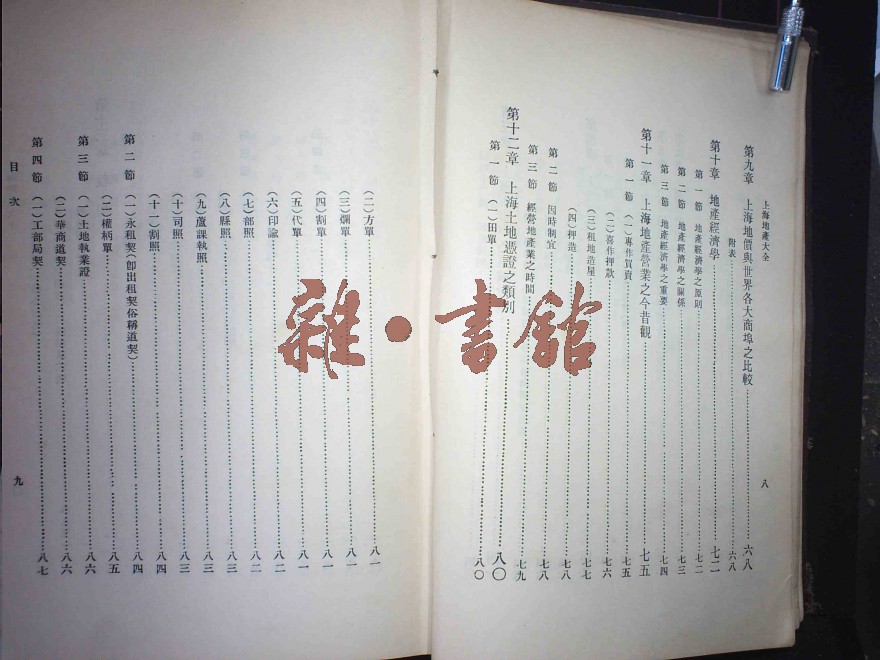 上海地產大全
八
第九章　上海地價與世界各大商埠之比較……六八
附表……六八
第十章　地產經濟學……七二
第一節　地產經濟學之原則……七二
第二節　地產經濟學之關係……七三
第三節　地產經濟學之重要……七四
第十一章　上海地產營業之今昔觀……七五
第一節　（一）專作買賣……七五
（二）喜作押款……七六
（三）租地造屋……七七
（四）押造……七八
第二節　因時制宜……七八
第三節　經營地產業之時間……七九
第十二章　上海土地憑證之類別……八〇
第一節　（一）田單……八〇
（二）方單……八一
（三）爛單……八一
（四）割單……八一
（五）代單……八一
（六）印諭……八二
（七）部照……八二
（八）縣照……八三
（九）蘆課執照……八三
（十）司照……八三
（十一）割照……八四
第二節　（一）永租契（卽出租契俗稱道契）……八四
（二）權柄單……八五
第三節　（一）土地執業證……八六
（二）華商道契……八六
第四節　（一）工部局契……八七
目次
九
雜·書館